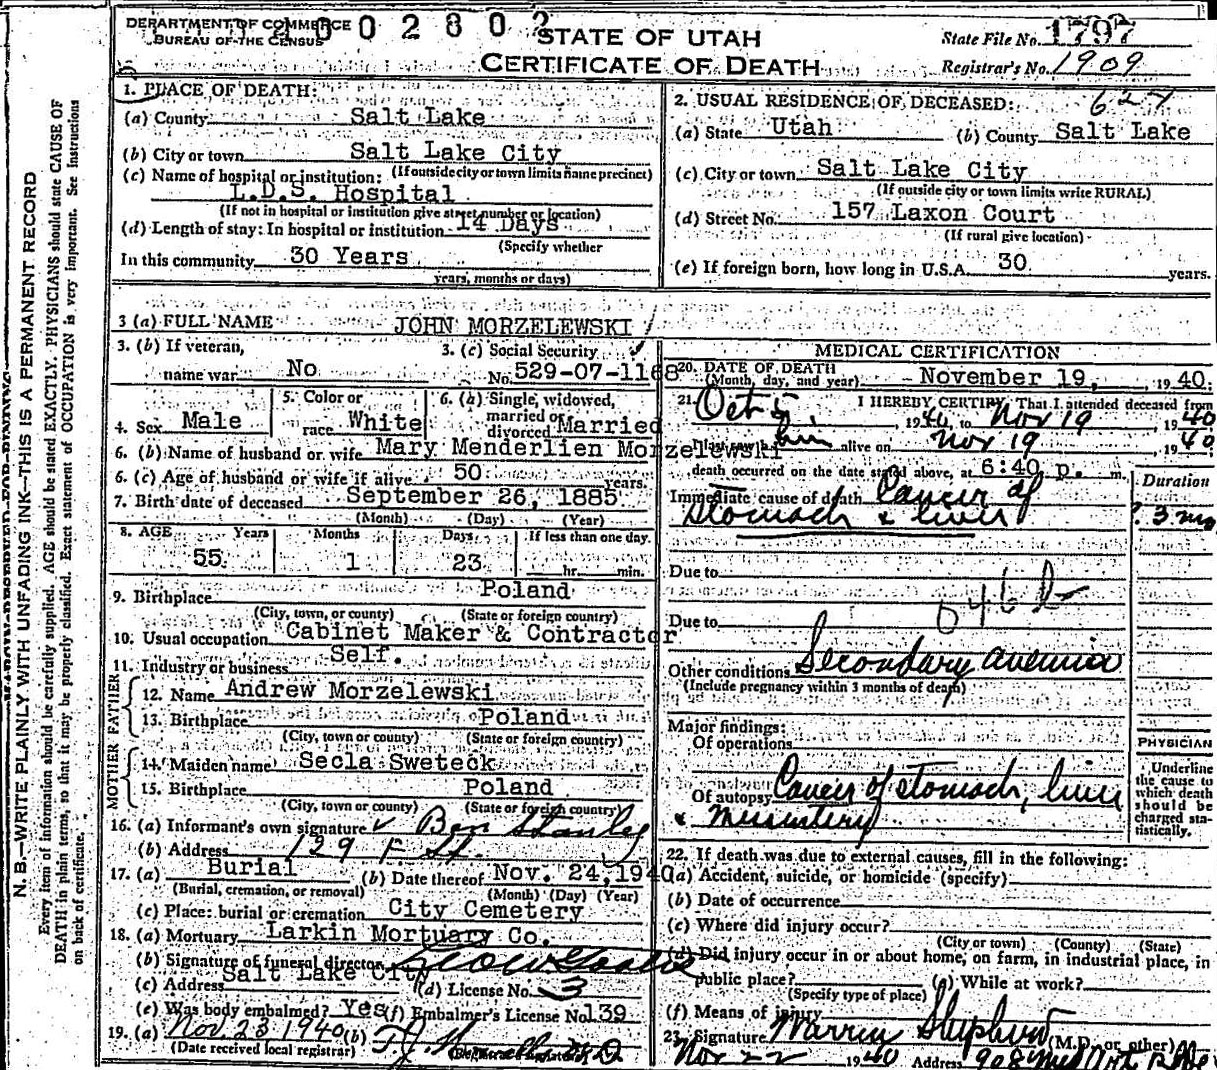 DEPARTMENT OF COMMERCE
BUREAU OF THE CENSUS
002803
STATE OF UTAH
CERTIFICATE OF DEATH
State File No. 1797
Registrar's No. 1909
627
N. B.—WRITE PLAINLY WITH UNFADING INK—THIS IS A PERMANENT RECORD
Every item of information should be carefully supplied. AGE should be stated EXACTLY. PHYSICIANS should state CAUSE OF
DEATH in plain terms, so that it may be properly classified. Exact statement of OCCUPATION is very important. See Instructions
on back of certificate.
1. PLACE OF DEATH:
(a) County Salt Lake
(b) City or town Salt Lake City
(If outside city or town limits name precinct)
(c) Name of hospital or institution:
L.D.S. Hospital
(If not in hospital or institution give street number or location)
(d) Length of stay: In hospital or institution 14 Days
(Specify whether
In this community 30 Years
years, months or days)
2. USUAL RESIDENCE OF DECEASED:
(a) State Utah (b) County Salt Lake
(c) City or town Salt Lake City
(If outside city or town limits write RURAL)
(d) Street No. 157 Laxon Court
(If rural give location)
(e) If foreign born, how long in U.S.A. 30 years.
3 (a) FULL NAME JOHN MORZELEWSKI
3. (b) If veteran, name war No
3. (c) Social Security No. 529-07-1168
4. Sex Male
5. Color or race White
6. (a) Single, widowed, married or divorced Married
6. (b) Name of husband or wife Mary Menderlien Morzelewski
6. (c) Age of husband or wife if alive 50 years.
7. Birth date of deceased September 26, 1885
(Month) (Day) (Year)
8. AGE Years Months Days If less than one day.
55 1 23 hr. min.
9. Birthplace Poland
(City, town, or county) (State or foreign country)
10. Usual occupation Cabinet Maker & Contractor
11. Industry or business Self.
FATHER
12. Name Andrew Morzelewski
13. Birthplace Poland
(City, town or county) (State or foreign country)
MOTHER
14. Maiden name Secla Sweteck
15. Birthplace Poland
(City, town or county) (State or foreign country)
16. (a) Informant's own signature Ben Stanley
(b) Address 129 F St.
17. (a) Burial (b) Date thereof Nov. 24, 1940
(Burial, cremation, or removal) (Month) (Day) (Year)
(c) Place: burial or cremation City Cemetery
18. (a) Mortuary Larkin Mortuary Co.
(b) Signature of funeral director
(c) Address Salt Lake City (d) License No. 3
(e) Was body embalmed? Yes (f) Embalmer's License No. 139
19. (a) Nov. 23 1940 (b)
(Date received local registrar)
MEDICAL CERTIFICATION
20. DATE OF DEATH
(Month, day, and year) November 19, 1940.
21. I HEREBY CERTIFY, That I attended deceased from
Oct 5, 1940, to Nov 19 1940
I last saw him alive on Nov 19, 1940
death occurred on the date stated above, at 6:40 p. m.
Duration
Immediate cause of death Cancer of
stomach & liver ? 3 mo
Due to
046 b
Due to
Other conditions Secondary anemia
(Include pregnancy within 3 months of death)
Major findings:
Of operations
Of autopsy Cancer of stomach, liver
& mesentery
PHYSICIAN
Underline
the cause to
which death
should be
charged sta-
tistically.
22. If death was due to external causes, fill in the following:
(a) Accident, suicide, or homicide (specify)
(b) Date of occurrence
(c) Where did injury occur?
(City or town) (County) (State)
(d) Did injury occur in or about home, on farm, in industrial place, in
public place? (e) While at work?
(Specify type of place)
(f) Means of injury
23. Signature Warren Shepherd (M.D. or other)
Nov 22 1940 Address 908